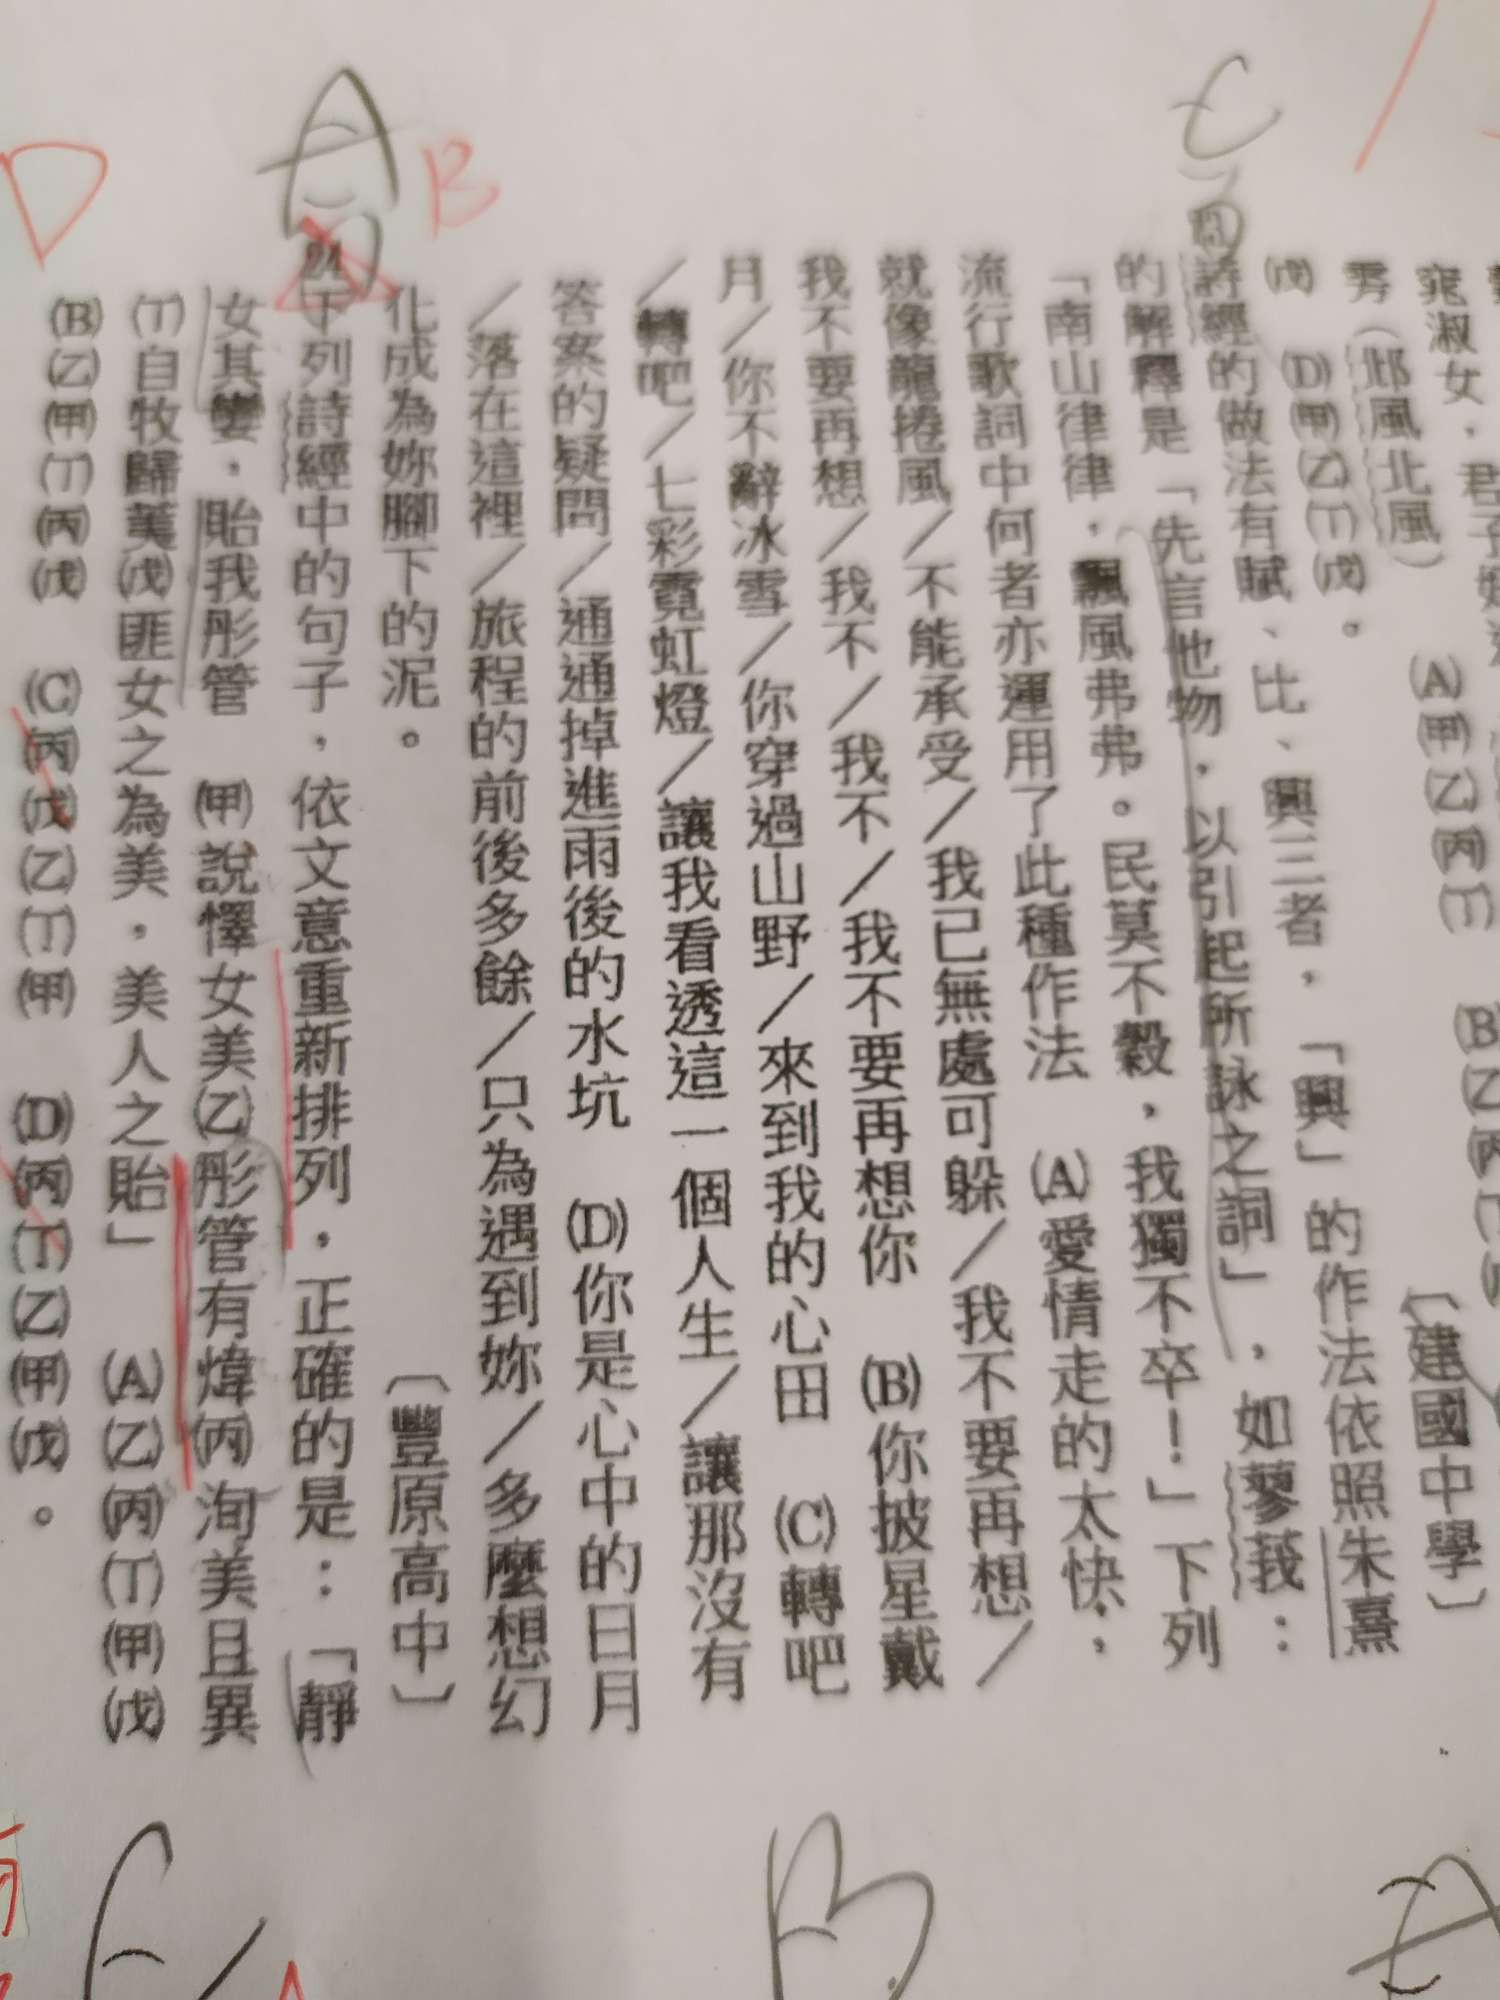 窕淑女，君子好逑
(A)(甲)(乙)(丙)(丁)
雱（邶風北風）
〔建國中學〕
(戊)　(D)(甲)(乙)(丁)(戊)。
詩經的做法有賦、比、興三者，「興」的作法依照朱熹
的解釋是「先言他物，以引起所詠之詞」，如蓼莪：
「南山律律，飄風弗弗。民莫不穀，我獨不卒！」下列
流行歌詞中何者亦運用了此種作法　(A)愛情走的太快，
就像龍捲風／不能承受／我已無處可躲／我不要再想／
我不要再想／我不／我不／我不要再想你　(B)你披星戴
月／你不辭冰雪／你穿過山野／來到我的心田　(C)轉吧
／轉吧／七彩霓虹燈／讓我看透這一個人生／讓那沒有
答案的疑問／通通掉進雨後的水坑　(D)你是心中的日月
／落在這裡／旅程的前後多餘／只為遇到妳／多麼想幻
化成為妳腳下的泥。
〔豐原高中〕
A
B
24下列詩經中的句子，依文意重新排列，正確的是：「靜
女其孌，貽我彤管　(甲)說懌女美(乙)彤管有煒(丙)洵美且異
(丁)自牧歸荑(戊)匪女之為美，美人之貽」　(A)(乙)(丙)(丁)(甲)(戊)
(B)(乙)(甲)(丁)(丙)(戊)　(C)(丙)(戊)(乙)(丁)(甲)　(D)(丙)(丁)(乙)(甲)(戊)。
D
C
B